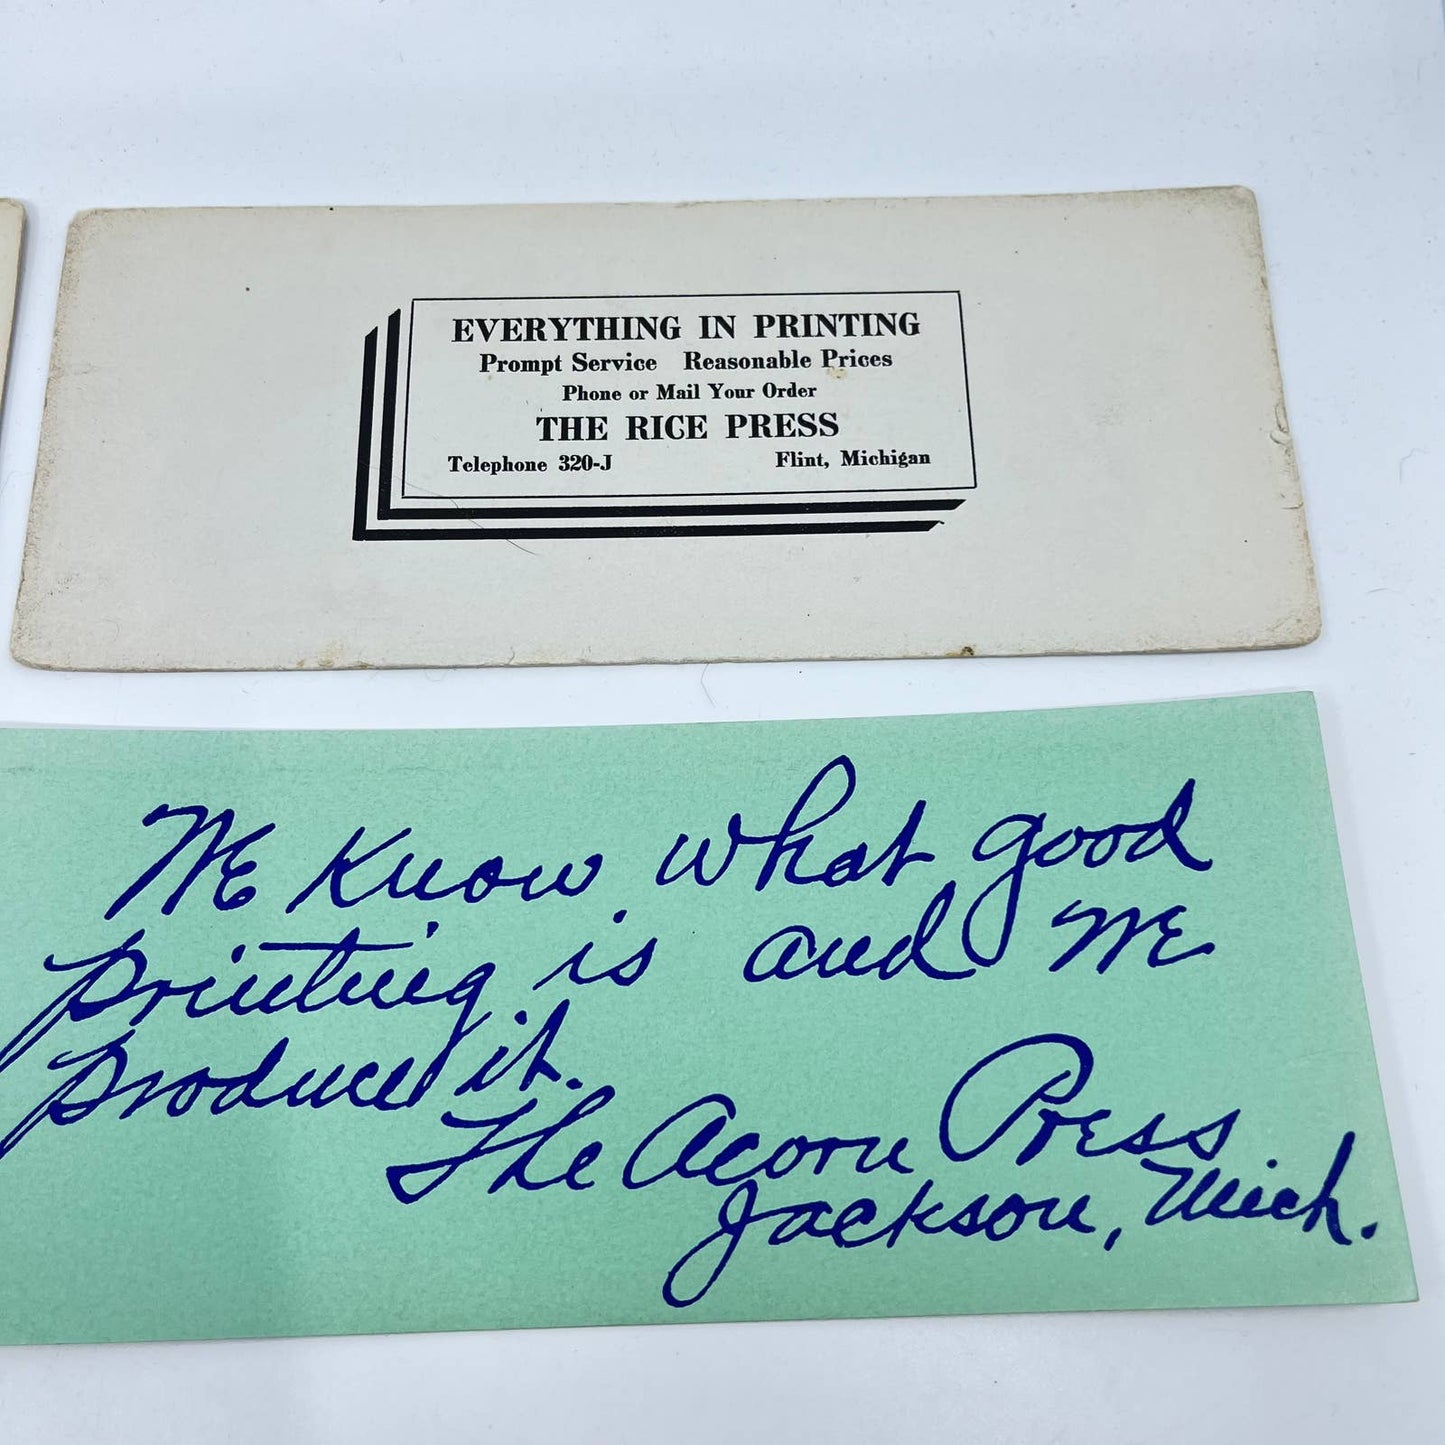 EVERYTHING IN PRINTING
Prompt Service Reasonable Prices
Phone or Mail Your Order
THE RICE PRESS
Telephone 320-J Flint, Michigan
We know what good
printing is and we
produce it.
The Acorn Press
Jackson, Mich.